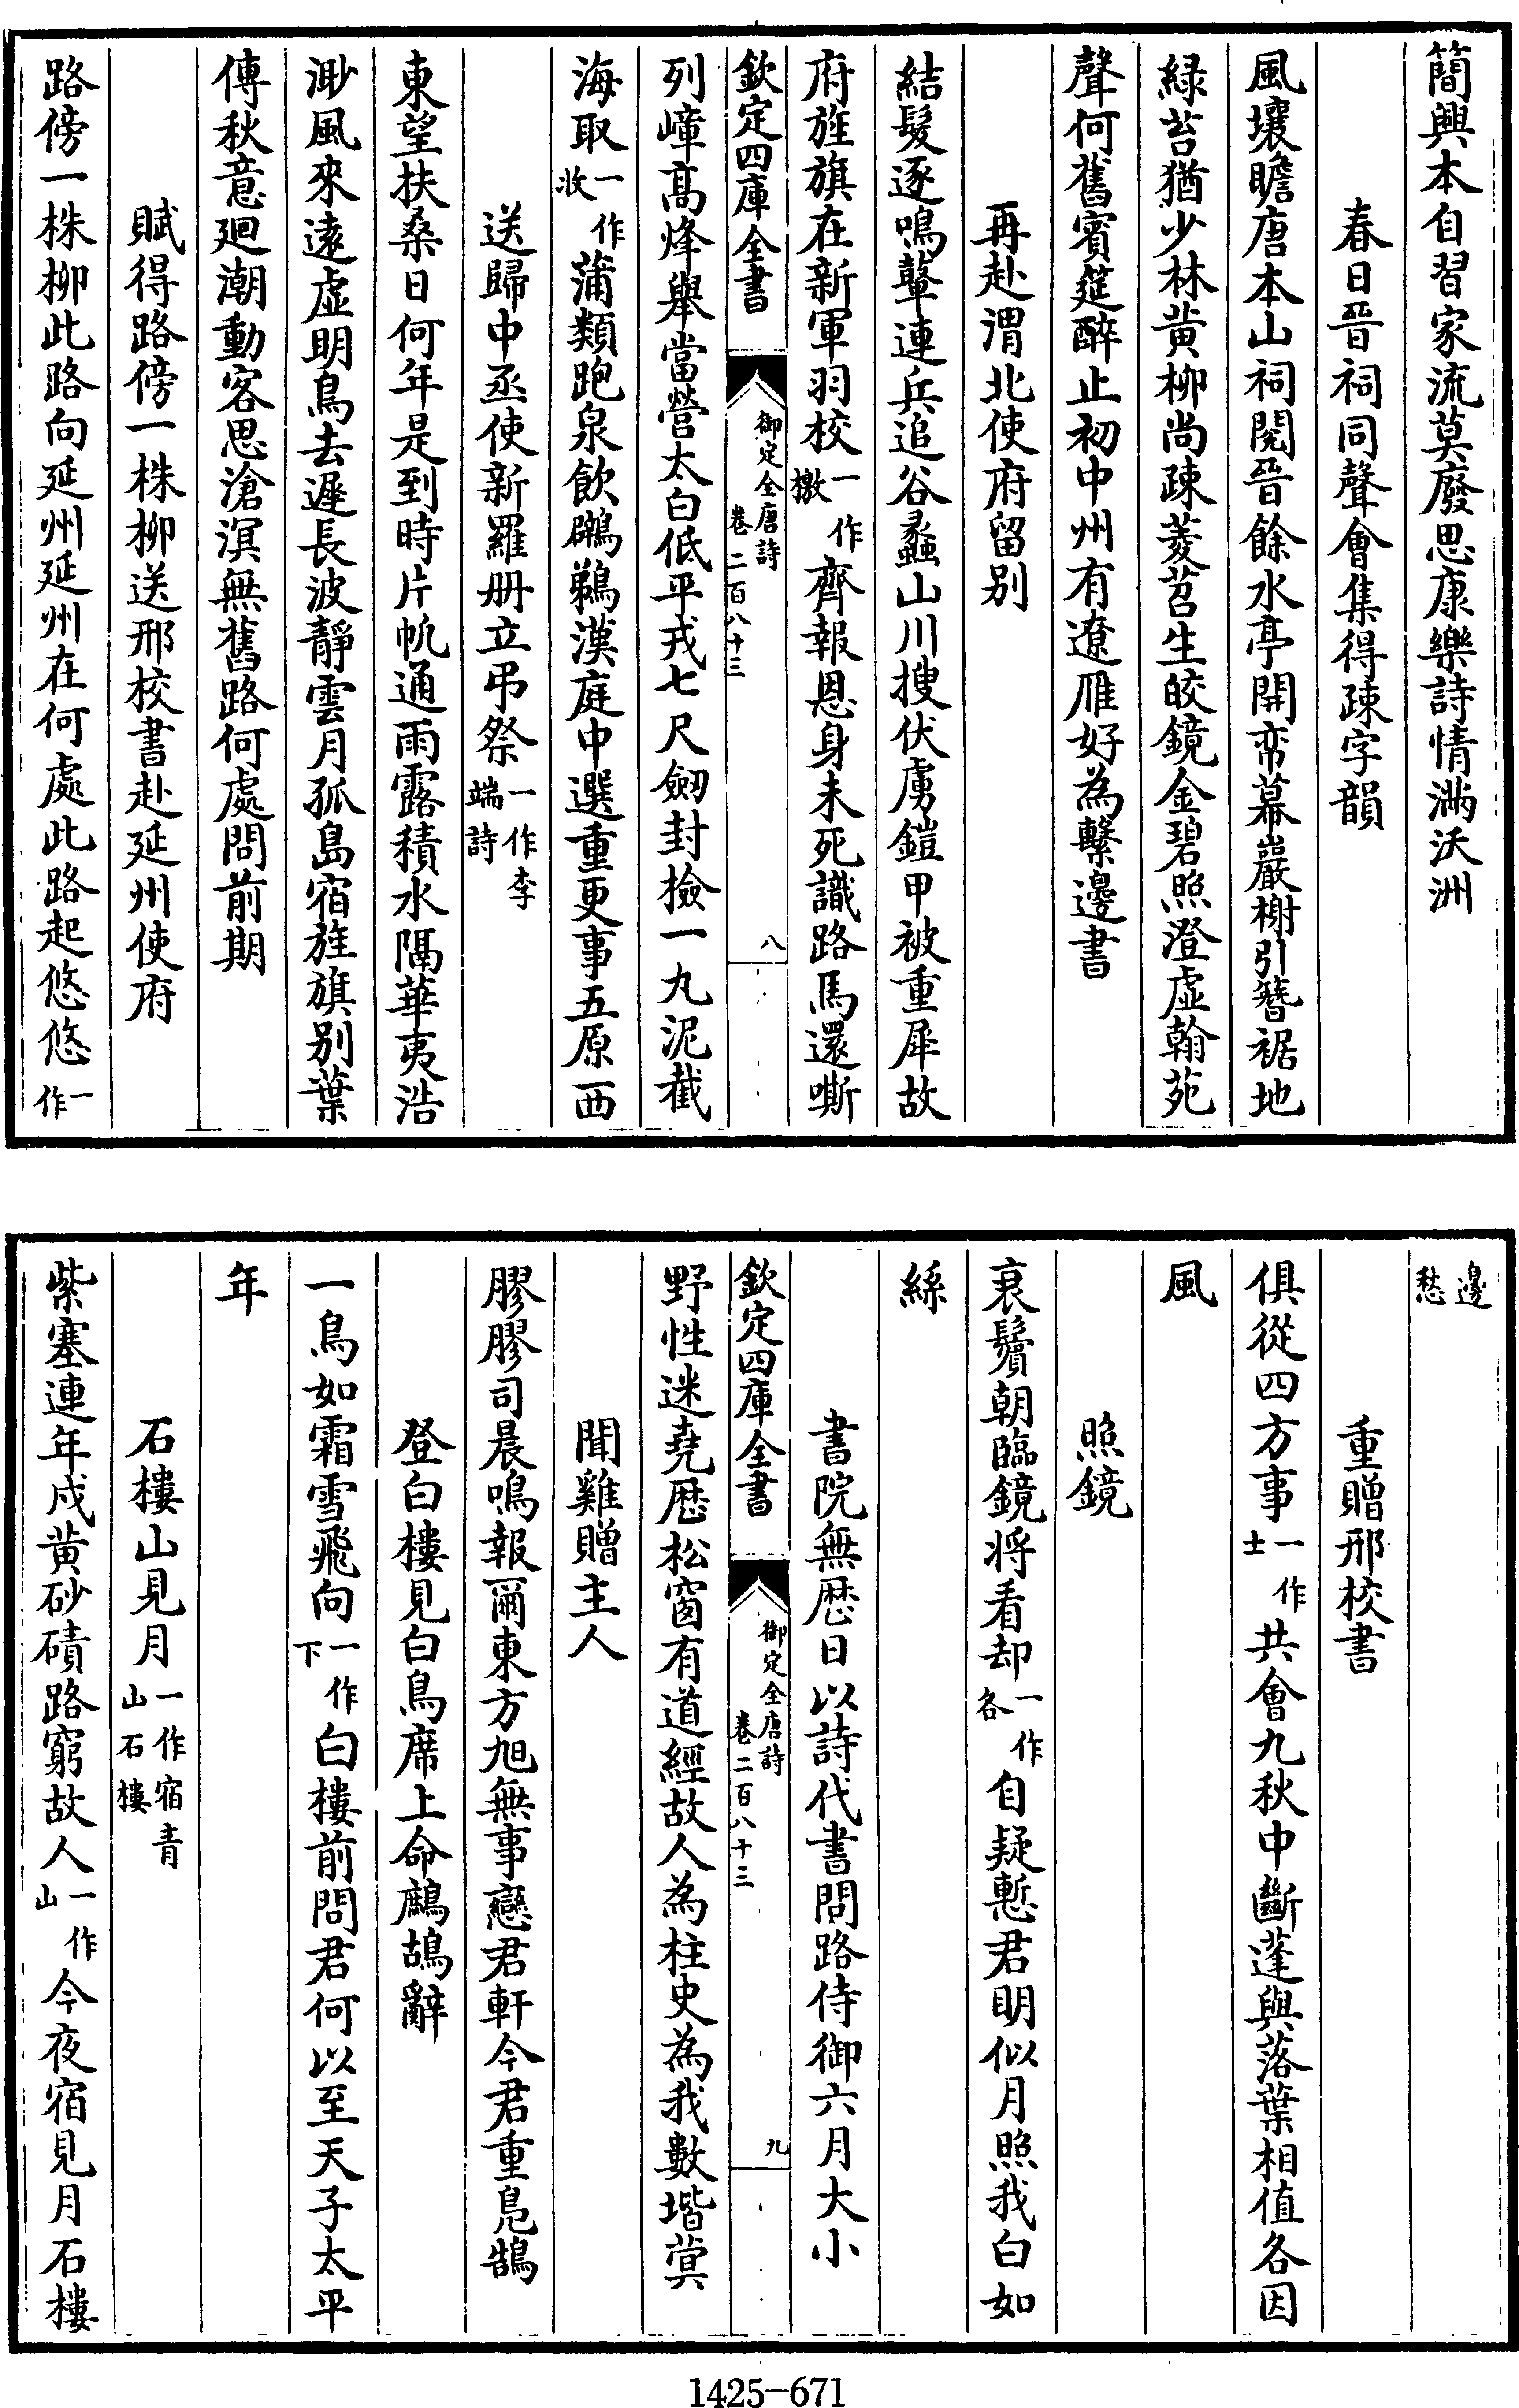 簡興本自習家流莫廢思康樂詩情滿沃洲
春日晉祠同聲會集得疎字韻
風壤瞻唐本山祠閱晉餘水亭開帟幕巖榭引簪裾地
緑苔猶少林黄柳尚疎菱苕生皎鏡金碧照澄虛翰苑
聲何舊賓筵醉止初中州有遼雁好為繫邊書
再赴渭北使府留别
結髮逐鳴鼙連兵追谷蠡山川搜伏虜鎧甲被重犀故
府旌旗在新軍羽校一作檄齊報恩身未死識路馬還嘶
欽定四庫全書
御定全唐詩
卷二百八十三
八
列嶂髙烽舉當營太白低平戎七尺劒封撿一丸泥截
海取一作收蒲類跑泉飲鸊鵜漢庭中選重更事五原西
送歸中丞使新羅册立弔祭一作李端詩
東望扶桑日何年是到時片帆通雨露積水隔華夷浩
渺風來逺虛明鳥去遲長波靜雲月孤島宿旌旗别葉
傳秋意廻潮動客思滄溟無舊路何處問前期
賦得路傍一株柳送邢校書赴延州使府
路傍一株柳此路向延州延州在何處此路起悠悠一作
邊愁
重贈邢校書
俱從四方事一作士共會九秋中斷蓬與落葉相值各因
風
照鏡
衰鬢朝臨鏡將看却一作各自疑慙君明似月照我白如
絲
書院無厯日以詩代書問路侍御六月大小
欽定四庫全書
御定全唐詩
卷二百八十三
九
野性迷堯厯松窗有道經故人為柱史為我數堦蓂
聞雞贈主人
膠膠司晨鳴報爾東方旭無事戀君軒今君重鳧鵠
登白樓見白鳥席上命鷓鴣辭
一鳥如霜雪飛向一作下白樓前問君何以至天子太平
年
石樓山見月一作宿青山石樓
紫塞連年戍黄砂磧路窮故人一作山今夜宿見月石樓
1425—671